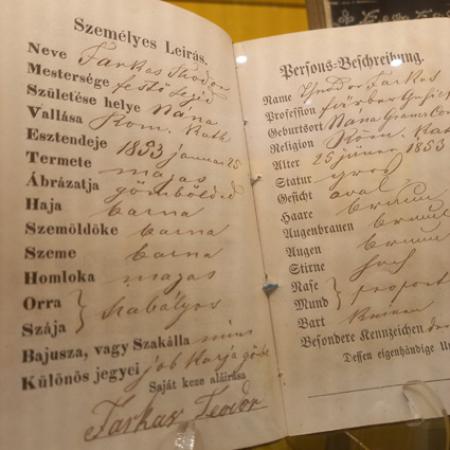 Személyes Leirás.
Neve Farkas Teodor
Mestersége festő segéd
Születése helye Nána
Vallása Rom. Kath
Esztendeje 1853 januar 25
Termete magas
Ábrázatja gömbölded
Haja barna
Szemöldöke barna
Szeme barna
Homloka magas
Orra } szabályos
Szája
Bajusza, vagy Szakálla nincs
Különös jegyei job karja görbe
Saját keze aláirása
Farkas Teodor
Persons-Beschreibung.
Name Theodor Farkas
Profession färber
Geburtsort Nána
Religion Röm. Kath
Alter 25 1853
Statur gros
Gesicht oval
Haare braun
Augenbrauen braun
Augen braun
Stirne hoch
Nase } proport
Mund
Bart Keinen
Besondere Kennzeichen
Dessen eigenhändige